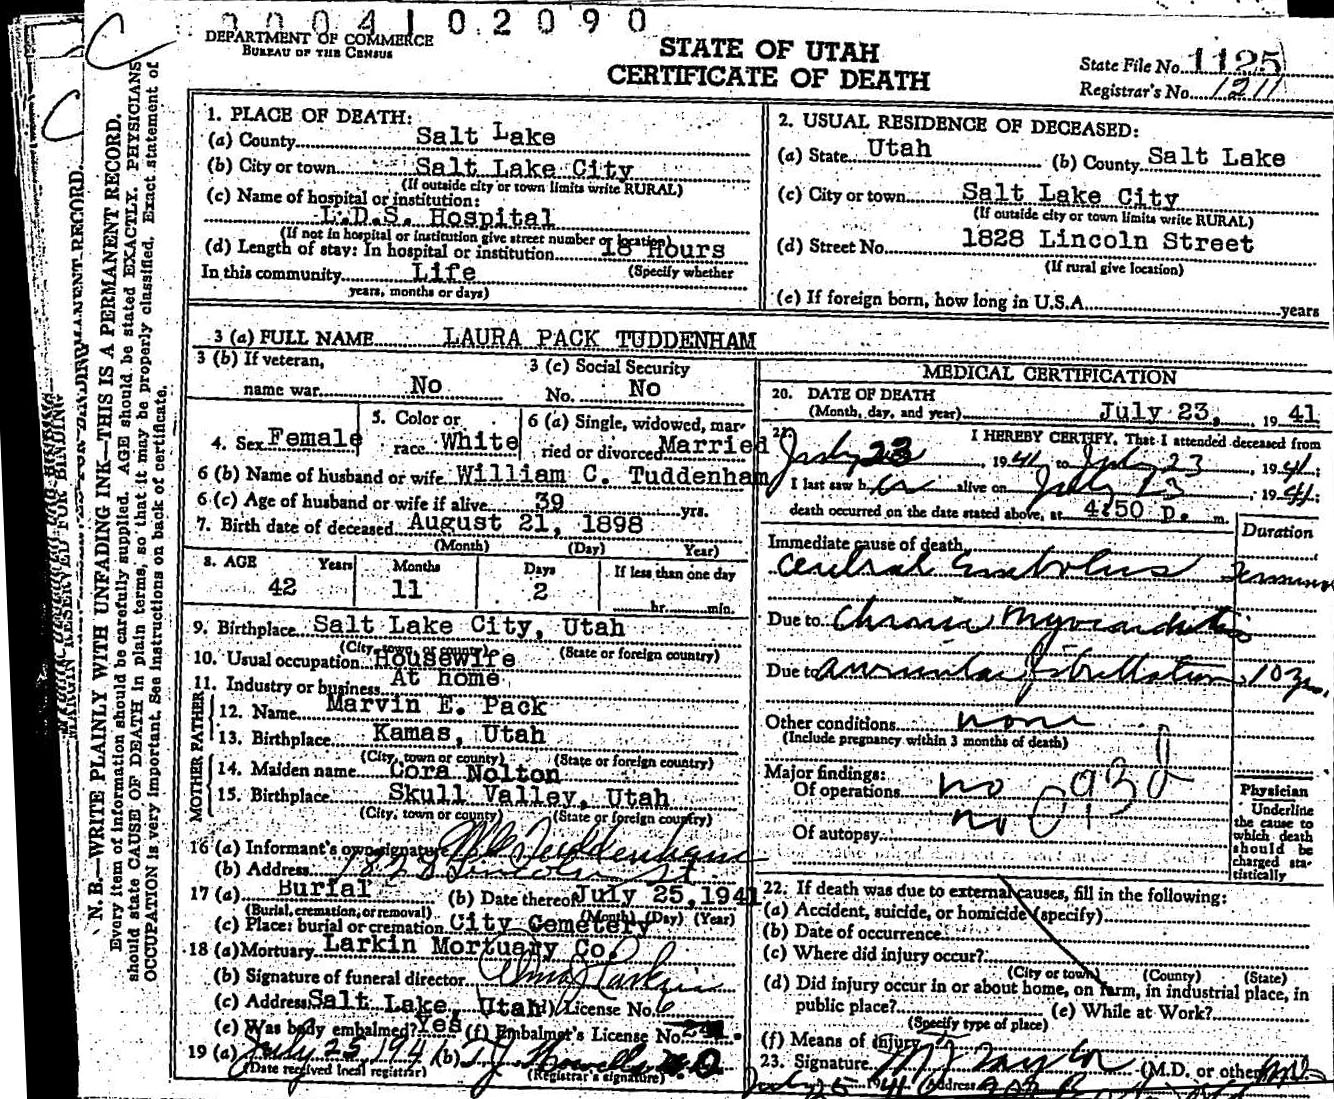 0004102090
DEPARTMENT OF COMMERCE
BUREAU OF THE CENSUS
STATE OF UTAH
CERTIFICATE OF DEATH
State File No. 1125
Registrar's No. 1211
N. B.—WRITE PLAINLY WITH UNFADING INK—THIS IS A PERMANENT RECORD.
Every item of information should be carefully supplied. AGE should be stated EXACTLY. PHYSICIANS
should state CAUSE OF DEATH in plain terms, so that it may be properly classified. Exact statement of
OCCUPATION is very important. See instructions on back of certificate.
1. PLACE OF DEATH:
(a) County Salt Lake
(b) City or town Salt Lake City
(If outside city or town limits write RURAL)
(c) Name of hospital or institution:
L.D.S. Hospital
(If not in hospital or institution give street number or location)
(d) Length of stay: In hospital or institution 18 Hours
In this community Life (Specify whether
years, months or days)
2. USUAL RESIDENCE OF DECEASED:
(a) State Utah (b) County Salt Lake
(c) City or town Salt Lake City
(If outside city or town limits write RURAL)
(d) Street No. 1828 Lincoln Street
(If rural give location)
(e) If foreign born, how long in U.S.A. years
3 (a) FULL NAME LAURA PACK TUDDENHAM
3 (b) If veteran,
name war No
3 (c) Social Security
No. No
4. Sex Female
5. Color or
race White
6 (a) Single, widowed, mar-
ried or divorced Married
6 (b) Name of husband or wife William C. Tuddenham
6 (c) Age of husband or wife if alive 39 yrs.
7. Birth date of deceased August 21, 1898
(Month) (Day) Year)
8. AGE Years Months Days If less than one day
42 11 2 hr. min.
9. Birthplace Salt Lake City, Utah
(City, town, or county) (State or foreign country)
10. Usual occupation Housewife
11. Industry or business At home
FATHER
12. Name Marvin E. Pack
13. Birthplace Kamas, Utah
(City, town or county) (State or foreign country)
MOTHER
14. Maiden name Cora Nolton
15. Birthplace Skull Valley, Utah
(City, town or county) (State or foreign country)
16 (a) Informant's own signature Tuddenham
(b) Address 1828 Lincoln St
17 (a) Burial (b) Date thereof July 25, 1941
(Burial, cremation, or removal) (Month) (Day) (Year)
(c) Place: burial or cremation City Cemetery
18 (a) Mortuary Larkin Mortuary Co.
(b) Signature of funeral director Larkin
(c) Address Salt Lake, Utah (d) License No. 6
(e) Was body embalmed? Yes (f) Embalmer's License No.
19 (a) July 25, 1941 (b) T.J. Howells M.D.
(Date received local registrar) (Registrar's signature)
MEDICAL CERTIFICATION
20. DATE OF DEATH
(Month, day, and year) July 23, 19 41
21. I HEREBY CERTIFY, That I attended deceased from
July 23, 19 41, to July 23, 19 41;
I last saw h er alive on July 23, 19 41;
death occurred on the date stated above, at 4:50 p. m.
Duration
Immediate cause of death
Cerebral Embolus
Due to Chronic Myocarditis
Due to auricular fibrillation 10 yrs.
Other conditions none
(Include pregnancy within 3 months of death)
Major findings:
Of operations no
Of autopsy no
093d
Physician
Underline
the cause to
which death
should be
charged sta-
tistically
22. If death was due to external causes, fill in the following:
(a) Accident, suicide, or homicide (specify)
(b) Date of occurrence
(c) Where did injury occur?
(City or town) (County) (State)
(d) Did injury occur in or about home, on farm, in industrial place, in
public place? (e) While at Work?
(Specify type of place)
(f) Means of injury
23. Signature Taylor (M.D. or other) MD
July 25 1941 Address